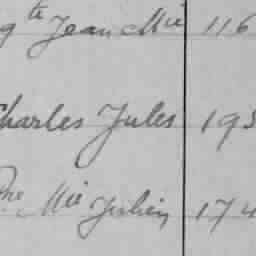 gte Jean Mie 116
Charles Jules 193
Mie Julien 174